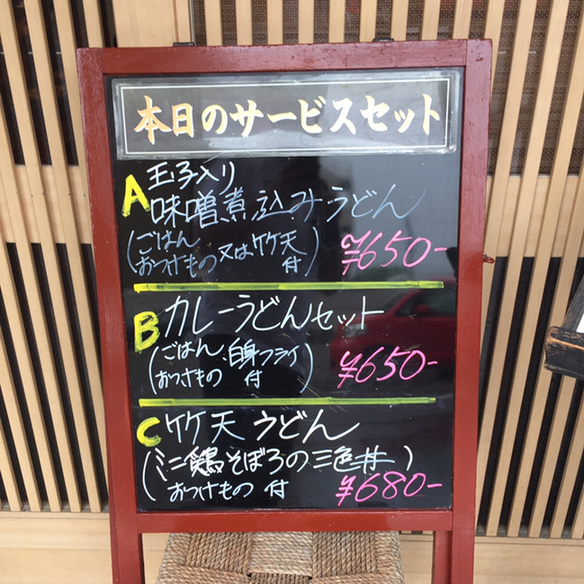 本日のサービスセット
A 玉子入り
味噌煮込みうどん
(ごはん
おつけもの又は竹天付)
¥650-
B カレーうどんセット
(ごはん、白身フライ
おつけもの付)
¥650-
C 竹天うどん
(ミニ鶏そぼろの三色丼)
おつけもの付
¥680-